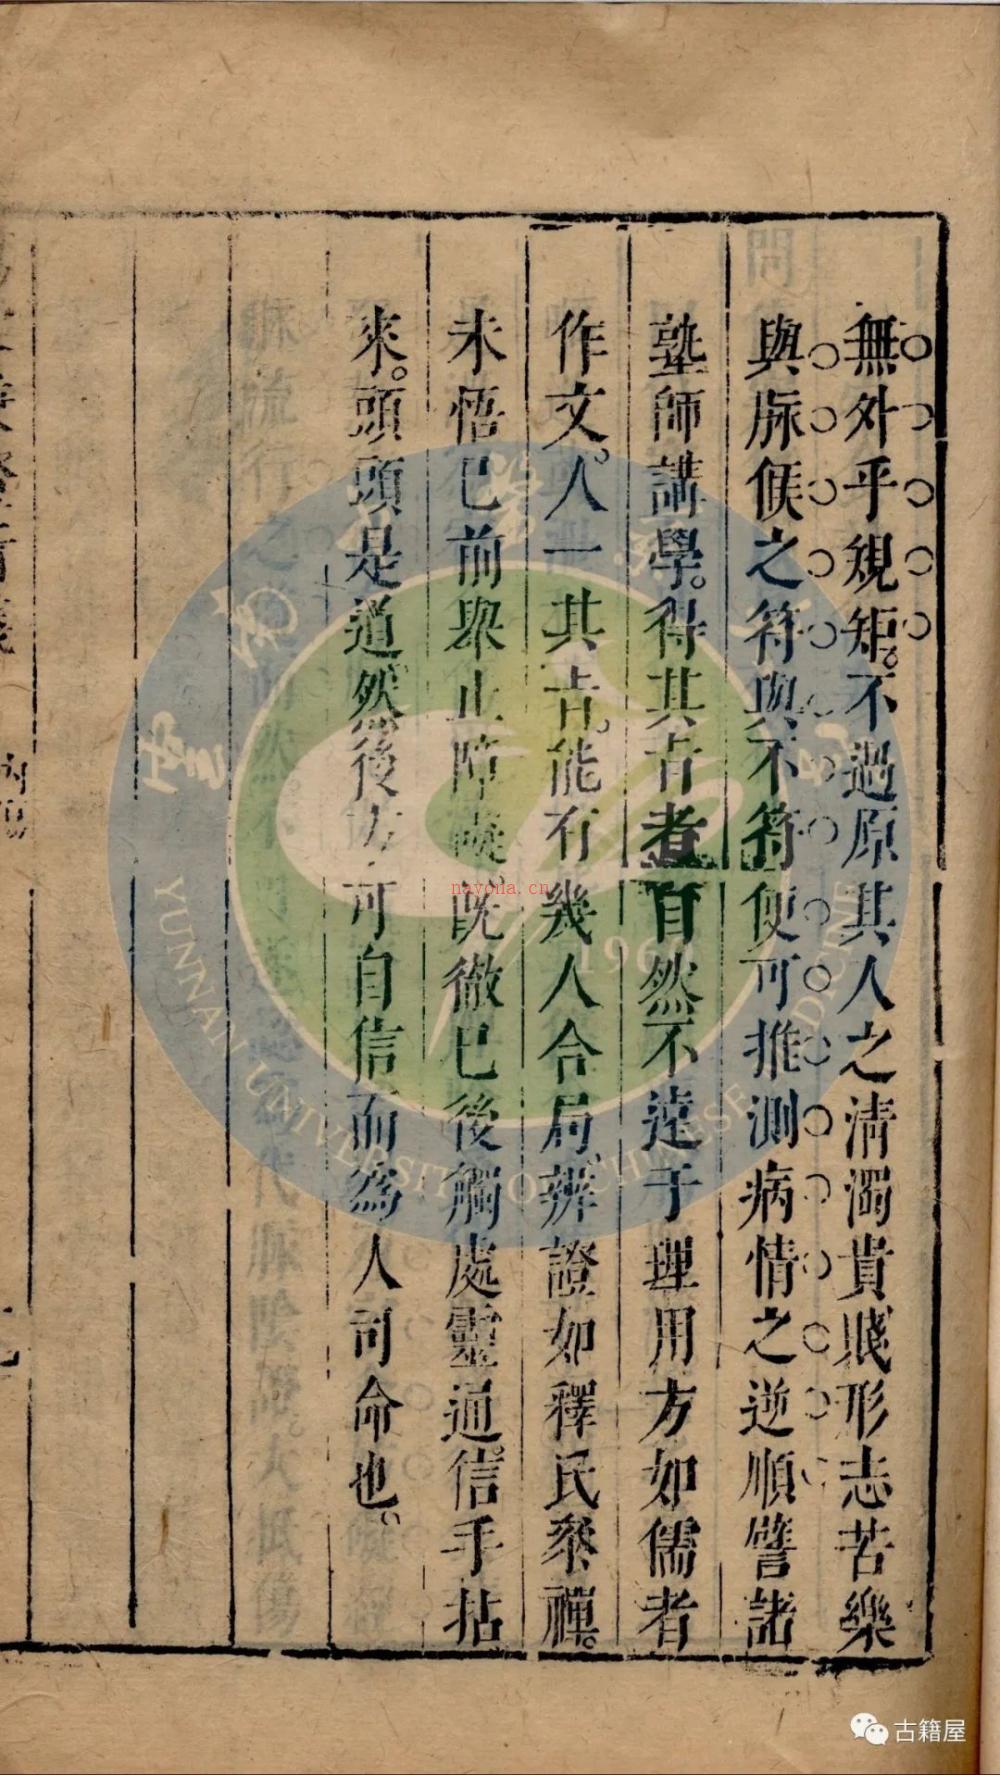 無外乎規矩。不過原其人之清濁貴賤形志苦樂
與脉候之符與不符便可推測病情之逆順譬諸
塾師講學。得其旨者自然不遠于理用方如儒者
作文。人一其旨。能有幾人合局。辨證如釋氏參禪。
未悟已前舉止障礙。旣徹已後觸處靈通。信手拈
來。頭頭是道。然後方可自信而為人司命也。
nayona.cn
YUNNAN UNIVERSITY OF CHINESE MEDICINE
196
古籍屋